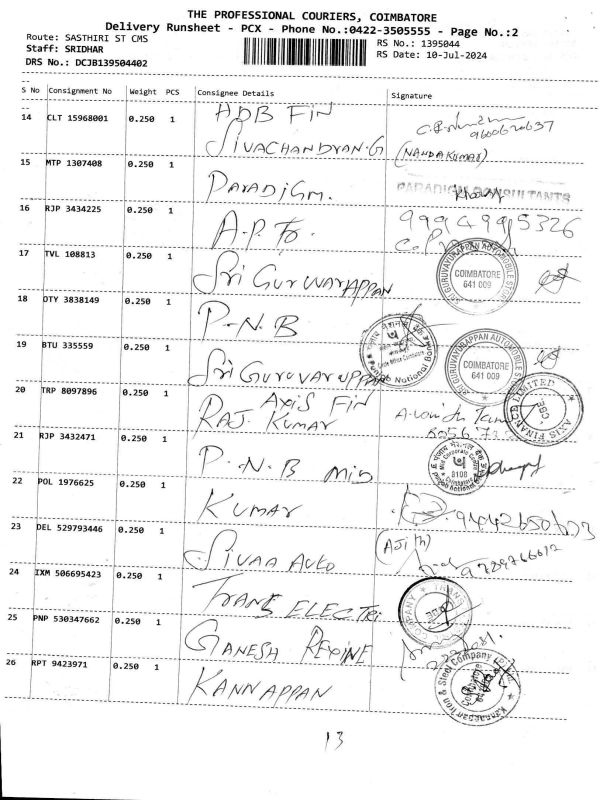 THE PROFESSIONAL COURIERS, COIMBATORE
Delivery Runsheet - PCX - Phone No.:0422-3505555 - Page No.:2
Route: SASTHIRI ST CMS
RS No.: 1395044
Staff: SRIDHAR
RS Date: 10-Jul-2024
DRS No.: DCJB139504402
S No Consignment No Weight PCS Consignee Details Signature
14 CLT 15968001 0.250 1 HDB FIN
SIVACHANDRAN.G
9600670637
(NANDAKUMAR)
15 MTP 1307408 0.250 1 PARADIGM.
PARADIGM CONSULTANTS
16 RJP 3434225 0.250 1 A.P. Fo.
17 TVL 108813 0.250 1 SRI GURUVAYAPPAN
SRI GURUVAYURAPPAN AUTOMOBILE STORES
COIMBATORE
641 009
18 OTY 3838149 0.250 1 P.N.B
Punjab National Bank
19 BTU 335559 0.250 1 SRI GURUVAYUPPAN
SRI GURUVAYURAPPAN AUTOMOBILE STORES
COIMBATORE
641 009
20 TRP 8097896 0.250 1 AXIS FIN
RAJ. KUMAR
AXIS FINANCE LIMITED
CBE
21 RJP 3432471 0.250 1 P.N.B MID
Mid Corporate Centre
8108
Coimbatore
punjab national bank
22 POL 1976625 0.250 1 KUMAR
23 DEL 529793446 0.250 1 SIVAA AUTO
(AJITH)
24 IXM 506695423 0.250 1 TRANS ELECTRI
COMPANY
25 PNP 530347662 0.250 1 GANESH REXINE
26 RPT 9423971 0.250 1 KANNAPPAN
Kannappan Iron & Steel Company (P) Ltd.
13